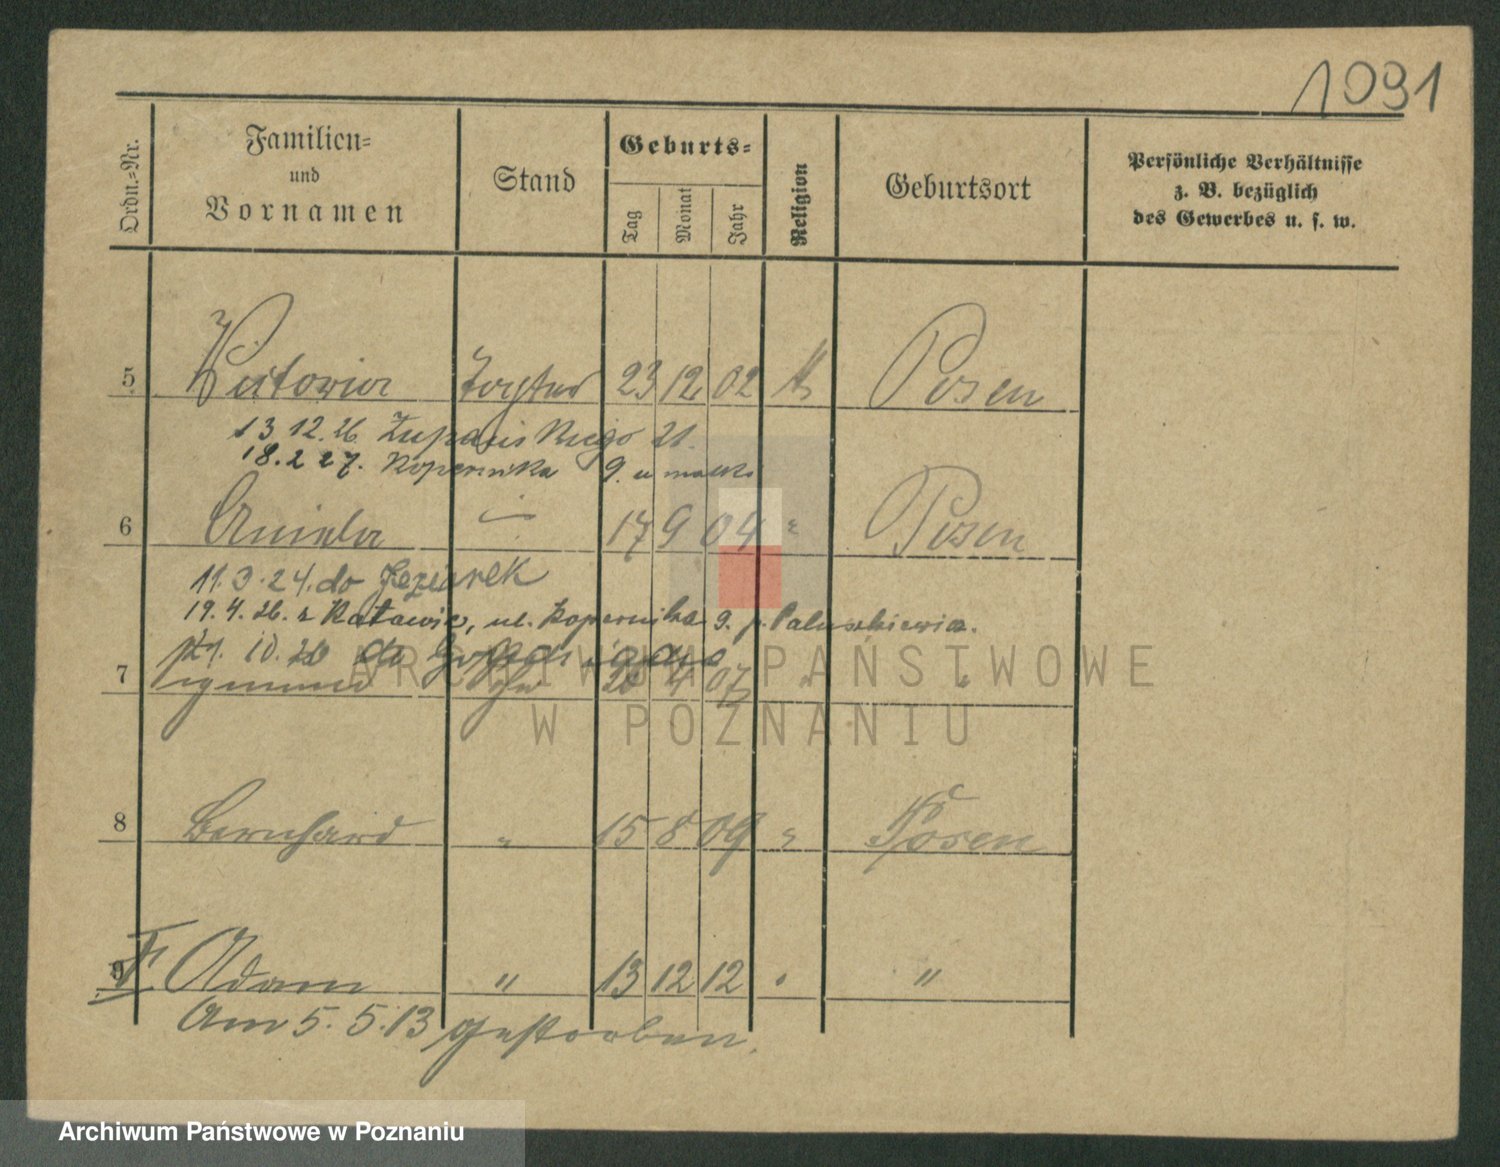 1091
Ordn.-Nr.
Familien-
und
Vornamen
Stand
Geburts-
Tag
Monat
Jahr
Religion
Geburtsort
Persönliche Verhältnisse
z. B. bezüglich
des Gewerbes u. s. w.
5 Victoria Tochter 23 12 02 k Posen
13 12. 26. Żupańskiego 21.
18. 2 27. Kopernika 9. u matki
6 Aniela 17 9 04 " Posen
11. 3. 24. do
19. 4. 26. z Katowic, ul. Kopernika 9. p. Paluszkiewicz.
10. 26 do
7 Sigmund 4 07 " "
8 Bernhard " 15 8 09 " Posen
9 Adam " 13 12 12 " "
Am 5. 5. 13 gestorben.
ARCHIWUM PAŃSTWOWE
W POZNANIU
Archiwum Państwowe w Poznaniu